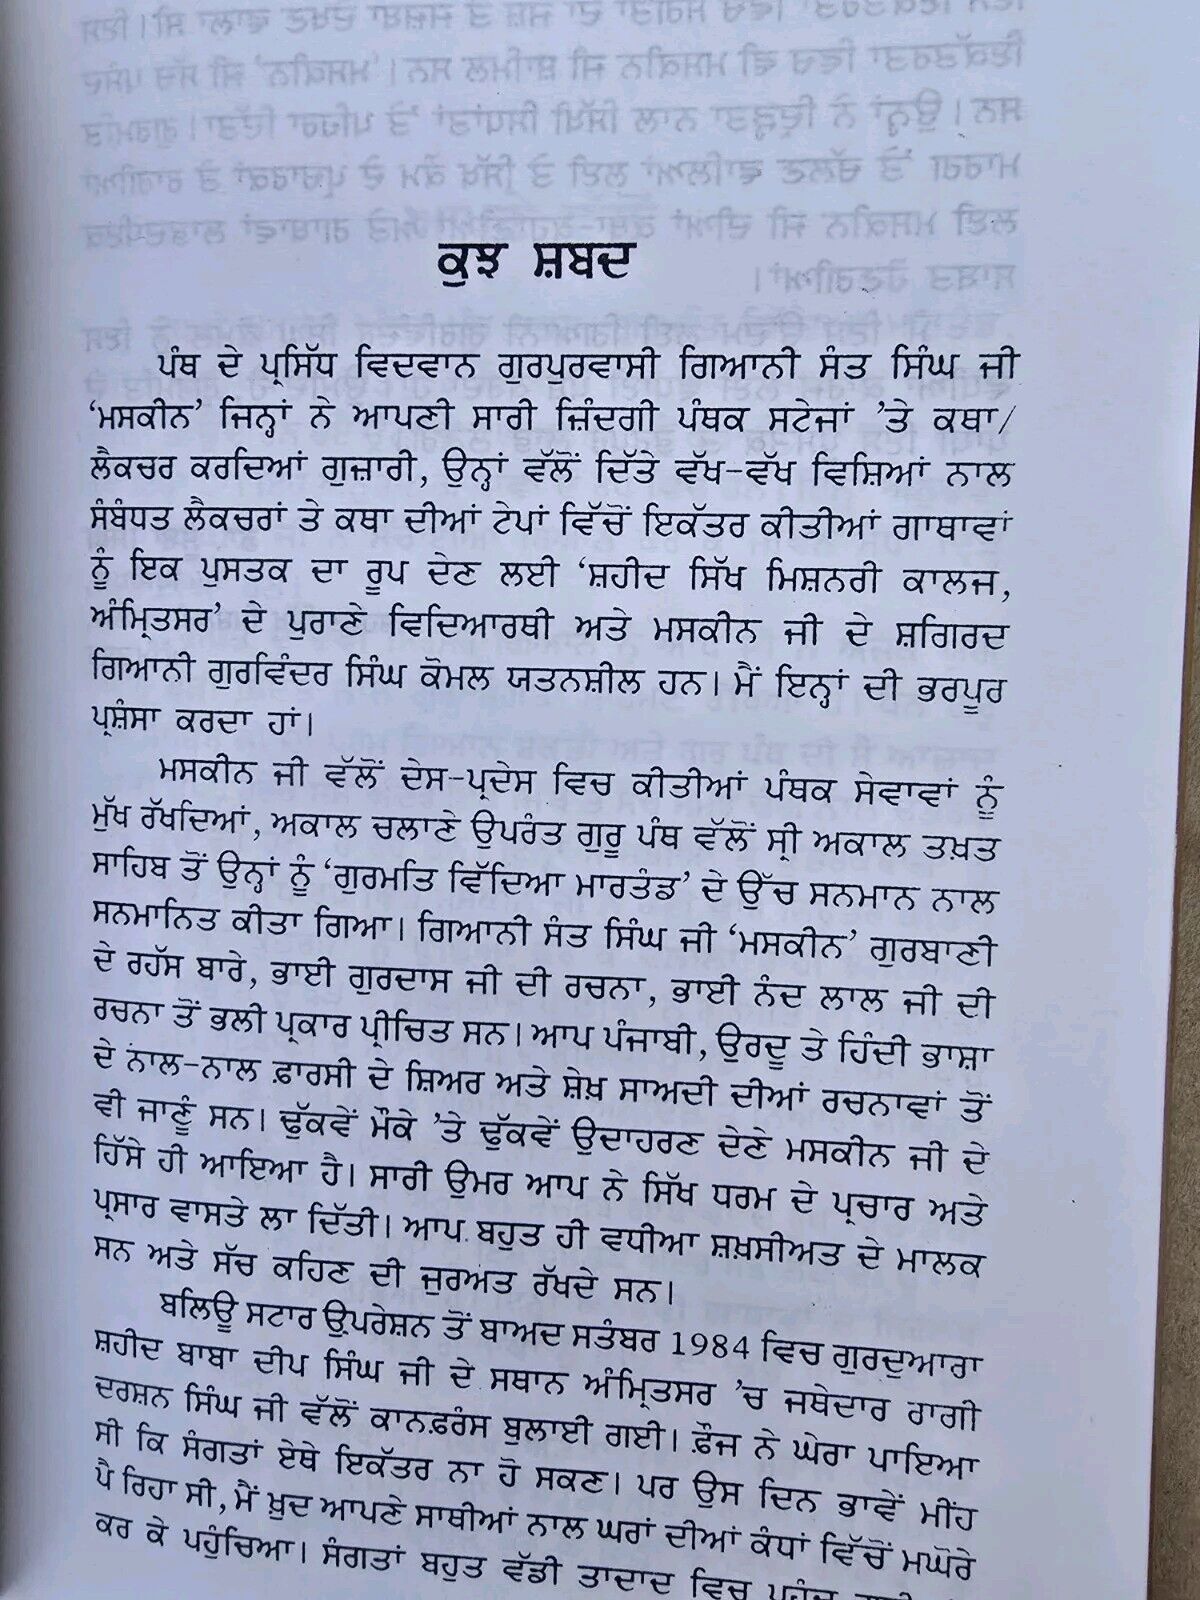 ਕੁਝ ਸ਼ਬਦ
ਪੰਥ ਦੇ ਪ੍ਰਸਿੱਧ ਵਿਦਵਾਨ ਗੁਰਪੁਰਵਾਸੀ ਗਿਆਨੀ ਸੰਤ ਸਿੰਘ ਜੀ
‘ਮਸਕੀਨ’ ਜਿਨ੍ਹਾਂ ਨੇ ਆਪਣੀ ਸਾਰੀ ਜ਼ਿੰਦਗੀ ਪੰਥਕ ਸਟੇਜਾਂ ’ਤੇ ਕਥਾ/
ਲੈਕਚਰ ਕਰਦਿਆਂ ਗੁਜ਼ਾਰੀ, ਉਨ੍ਹਾਂ ਵੱਲੋਂ ਦਿੱਤੇ ਵੱਖ-ਵੱਖ ਵਿਸ਼ਿਆਂ ਨਾਲ
ਸੰਬੰਧਤ ਲੈਕਚਰਾਂ ਤੇ ਕਥਾ ਦੀਆਂ ਟੇਪਾਂ ਵਿੱਚੋਂ ਇਕੱਤਰ ਕੀਤੀਆਂ ਗਾਥਾਵਾਂ
ਨੂੰ ਇਕ ਪੁਸਤਕ ਦਾ ਰੂਪ ਦੇਣ ਲਈ ‘ਸ਼ਹੀਦ ਸਿੱਖ ਮਿਸ਼ਨਰੀ ਕਾਲਜ,
ਅੰਮ੍ਰਿਤਸਰ’ ਦੇ ਪੁਰਾਣੇ ਵਿਦਿਆਰਥੀ ਅਤੇ ਮਸਕੀਨ ਜੀ ਦੇ ਸ਼ਗਿਰਦ
ਗਿਆਨੀ ਗੁਰਵਿੰਦਰ ਸਿੰਘ ਕੋਮਲ ਯਤਨਸ਼ੀਲ ਹਨ। ਮੈਂ ਇਨ੍ਹਾਂ ਦੀ ਭਰਪੂਰ
ਪ੍ਰਸ਼ੰਸਾ ਕਰਦਾ ਹਾਂ।
ਮਸਕੀਨ ਜੀ ਵੱਲੋਂ ਦੇਸ-ਪ੍ਰਦੇਸ ਵਿਚ ਕੀਤੀਆਂ ਪੰਥਕ ਸੇਵਾਵਾਂ ਨੂੰ
ਮੁੱਖ ਰੱਖਦਿਆਂ, ਅਕਾਲ ਚਲਾਣੇ ਉਪਰੰਤ ਗੁਰੂ ਪੰਥ ਵੱਲੋਂ ਸ੍ਰੀ ਅਕਾਲ ਤਖ਼ਤ
ਸਾਹਿਬ ਤੋਂ ਉਨ੍ਹਾਂ ਨੂੰ ‘ਗੁਰਮਤਿ ਵਿੱਦਿਆ ਮਾਰਤੰਡ’ ਦੇ ਉੱਚ ਸਨਮਾਨ ਨਾਲ
ਸਨਮਾਨਿਤ ਕੀਤਾ ਗਿਆ। ਗਿਆਨੀ ਸੰਤ ਸਿੰਘ ਜੀ ‘ਮਸਕੀਨ’ ਗੁਰਬਾਣੀ
ਦੇ ਰਹੱਸ ਬਾਰੇ, ਭਾਈ ਗੁਰਦਾਸ ਜੀ ਦੀ ਰਚਨਾ, ਭਾਈ ਨੰਦ ਲਾਲ ਜੀ ਦੀ
ਰਚਨਾ ਤੋਂ ਭਲੀ ਪ੍ਰਕਾਰ ਪ੍ਰੀਚਿਤ ਸਨ। ਆਪ ਪੰਜਾਬੀ, ਉਰਦੂ ਤੇ ਹਿੰਦੀ ਭਾਸ਼ਾ
ਦੇ ਨਾਲ-ਨਾਲ ਫ਼ਾਰਸੀ ਦੇ ਸ਼ਿਅਰ ਅਤੇ ਸ਼ੇਖ਼ ਸਾਅਦੀ ਦੀਆਂ ਰਚਨਾਵਾਂ ਤੋਂ
ਵੀ ਜਾਣੂੰ ਸਨ। ਢੁੱਕਵੇਂ ਮੌਕੇ ’ਤੇ ਢੁੱਕਵੇਂ ਉਦਾਹਰਣ ਦੇਣੇ ਮਸਕੀਨ ਜੀ ਦੇ
ਹਿੱਸੇ ਹੀ ਆਇਆ ਹੈ। ਸਾਰੀ ਉਮਰ ਆਪ ਨੇ ਸਿੱਖ ਧਰਮ ਦੇ ਪ੍ਰਚਾਰ ਅਤੇ
ਪ੍ਰਸਾਰ ਵਾਸਤੇ ਲਾ ਦਿੱਤੀ। ਆਪ ਬਹੁਤ ਹੀ ਵਧੀਆ ਸ਼ਖ਼ਸੀਅਤ ਦੇ ਮਾਲਕ
ਸਨ ਅਤੇ ਸੱਚ ਕਹਿਣ ਦੀ ਜੁਰਅਤ ਰੱਖਦੇ ਸਨ।
ਬਲਿਊ ਸਟਾਰ ਉਪਰੇਸ਼ਨ ਤੋਂ ਬਾਅਦ ਸਤੰਬਰ 1984 ਵਿਚ ਗੁਰਦੁਆਰਾ
ਸ਼ਹੀਦ ਬਾਬਾ ਦੀਪ ਸਿੰਘ ਜੀ ਦੇ ਸਥਾਨ ਅੰਮ੍ਰਿਤਸਰ ’ਚ ਜਥੇਦਾਰ ਰਾਗੀ
ਦਰਸ਼ਨ ਸਿੰਘ ਜੀ ਵੱਲੋਂ ਕਾਨਫ਼ਰੰਸ ਬੁਲਾਈ ਗਈ। ਫ਼ੌਜ ਨੇ ਘੇਰਾ ਪਾਇਆ
ਸੀ ਕਿ ਸੰਗਤਾਂ ਏਥੇ ਇਕੱਤਰ ਨਾ ਹੋ ਸਕਣ। ਪਰ ਉਸ ਦਿਨ ਭਾਵੇਂ ਮੀਂਹ
ਪੈ ਰਿਹਾ ਸੀ, ਮੈਂ ਖ਼ੁਦ ਆਪਣੇ ਸਾਥੀਆਂ ਨਾਲ ਘਰਾਂ ਦੀਆਂ ਕੰਧਾਂ ਵਿੱਚੋਂ ਮਘੋਰੇ
ਕਰ ਕੇ ਪਹੁੰਚਿਆ। ਸੰਗਤਾਂ ਬਹੁਤ ਵੱਡੀ ਤਾਦਾਦ ਵਿਚ